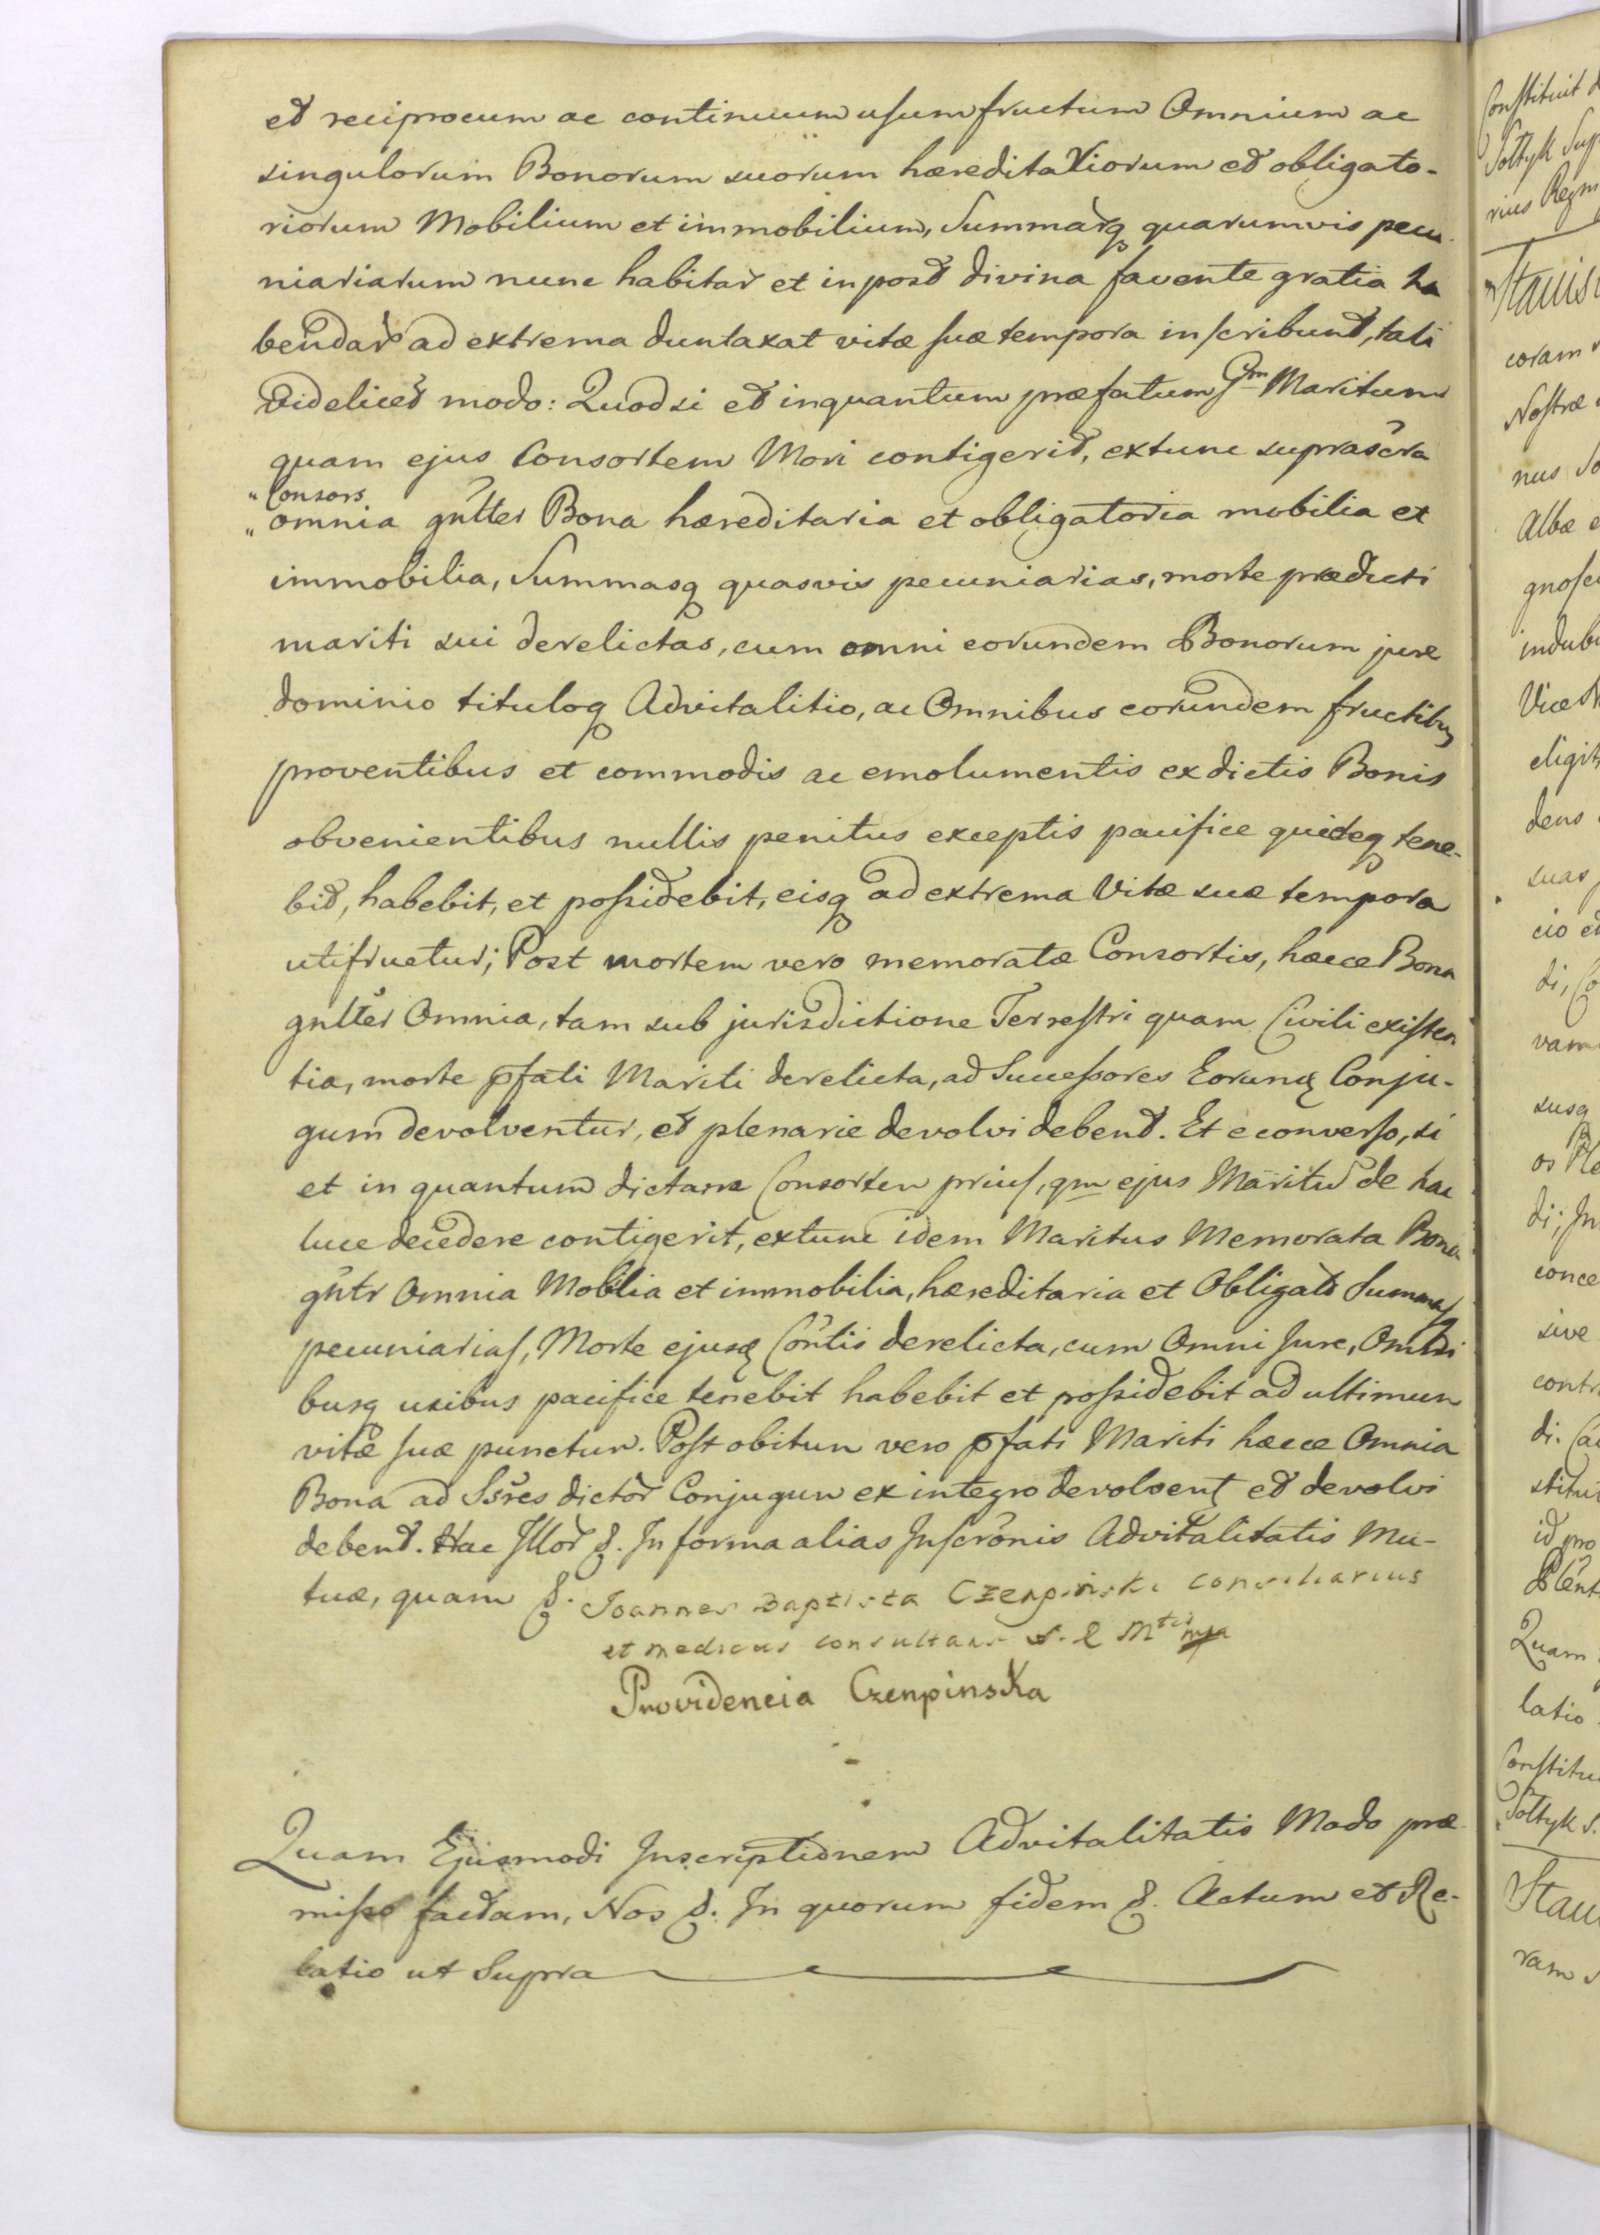 et reciprocum ac continuum usumfructum Omnium ac
singulorum Bonorum suorum hæreditariorum et obligato-
riorum Mobilium et immobilium, Summarq quarumvis pecu
niariarum nunc habitar et in post divina favente gratia ha
bendar ad extrema duntaxat vitæ suæ tempora inscribunt, tali
videlicet modo: Quod si et inquantum præfatum Gm Maritum
quam ejus Consortem Mori contigerit, extunc suprascra
" Consors
" omnia gnlter Bona hæreditaria et obligatoria mobilia et
immobilia, Summasq quasvis pecuniarias, morte prædicti
mariti sui derelictas, cum omni eorundem Bonorum jure
dominio tituloq Advitalitio, ac Omnibus eorundem fructibus
proventibus et commodis ac emolumentis ex dictis Bonis
obvenientibus nullis penitus exceptis pacifice quieteq tene-
bit, habebit, et possidebit, eisq ad extrema Vitæ suæ tempora
utifruetur; Post mortem vero memoratæ Consortis, hæcce Bona
gnlter Omnia, tam sub jurisdictione Terrestri quam Civili existen
tia, morte pfati Mariti derelicta, ad Successores Eorund Conju-
gum devolventur, et plenarie devolvi debent. Et e converso, si
et in quantum dictam Consortem prius, qm ejus Maritu de hac
luce decedere contigerit, extunc idem Maritus Memorata Bona
gnlr Omnia Mobilia et immobilia, hæreditaria et Obligato Summas
pecuniarias, Morte ejusd Contis derelicta, cum Omni Jure, Omni
busq usibus pacifice tenebit habebit et possidebit ad ultimum
vitæ suæ punctum. Post obitum vero pfati Mariti hæcce Omnia
Bona ad Ssres dictor Conjugum ex integro devolvent et devolvi
debent. Hac Illor &. In forma alias Inscronis Advitalitatis Mu-
tuæ, quam &. Joannes Baptista Czenpinski consiliarius
et medicus consultans S. R Mtis
Providencia Czenpinska
Quam Ejusmodi Inscriptionem Advitalitatis Modo præ
misso factam, Nos &. In quorum fidem &. Actum et Re-
latio ut Supra
Constituit
Sołtyk Sup
rius Regni
Stanis
coram
Nostræ
nus
Albæ e
gnosci
indub
Vice
eligit
dens
suas
cio et
di, Co
vam
susq
os Ple
di; In
conce
sive
contr
di. Ca
stitui
id pro
Plent
Quam
latio
Constitu
Sołtyk S.
Stani
ram